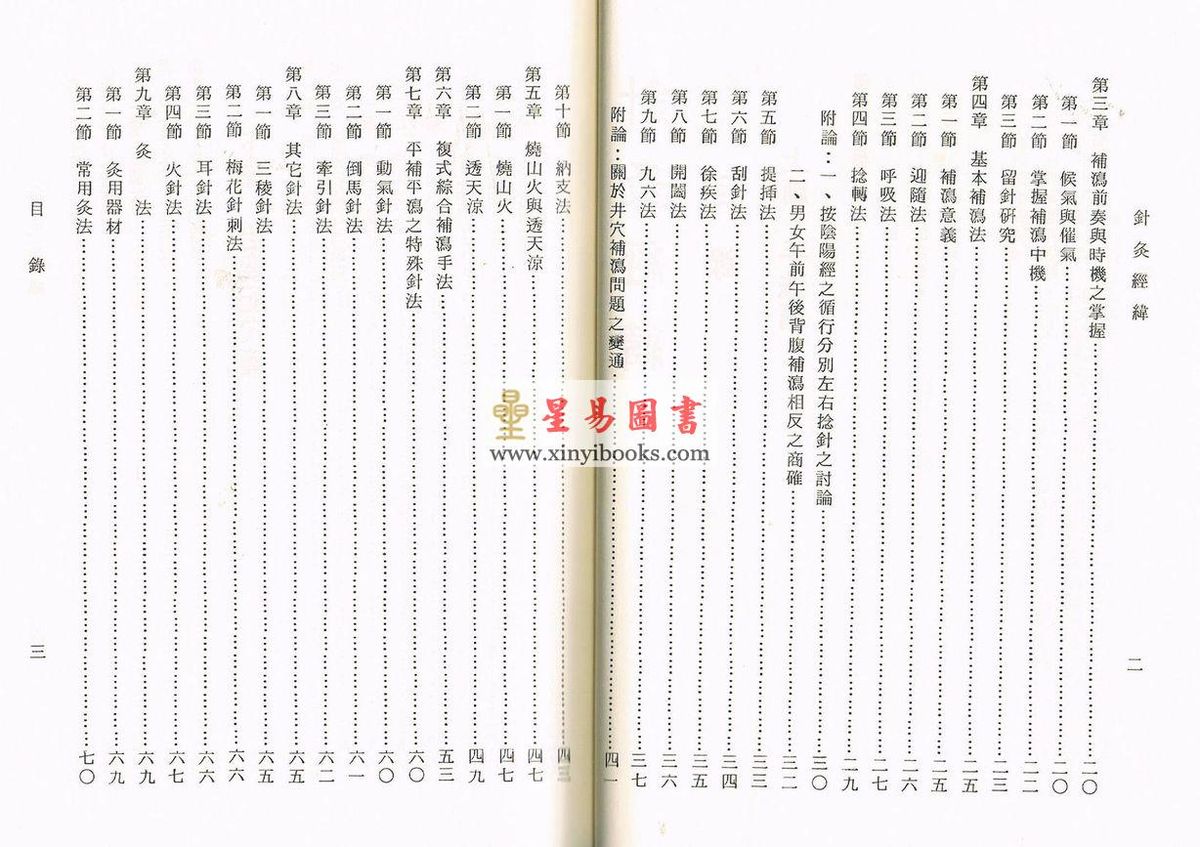 針灸經緯
二
第三章 補瀉前奏與時機之掌握……二〇
第一節 候氣與催氣……二〇
第二節 掌握補瀉中機……二二
第三節 留針研究……二三
第四章 基本補瀉法……二五
第一節 補瀉意義……二五
第二節 迎隨法……二六
第三節 呼吸法……二七
第四節 捻轉法……二九
附論：一、按陰陽經之循行分別左右捻針之討論……三〇
二、男女午前午後背腹補瀉相反之商確……三二
第五節 提揷法……三三
第六節 刮針法……三四
第七節 徐疾法……三五
第八節 開闔法……三六
第九節 九六法……三七
附論：關於井穴補瀉問題之變通……四一
第十節 納支法……四三
第五章 燒山火與透天涼……四七
第一節 燒山火……四七
第二節 透天涼……四九
第六章 複式綜合補瀉手法……五三
第七章 平補平瀉之特殊針法……六〇
第一節 動氣針法……六〇
第二節 倒馬針法……六一
第三節 牽引針法……六二
第八章 其它針法……六五
第一節 三稜針法……六五
第二節 梅花針刺法……六六
第三節 耳針法……六六
第四節 火針法……六七
第九章 灸 法……六九
第一節 灸用器材……六九
第二節 常用灸法……七〇
目錄
三
星易圖書
www.xinyibooks.com